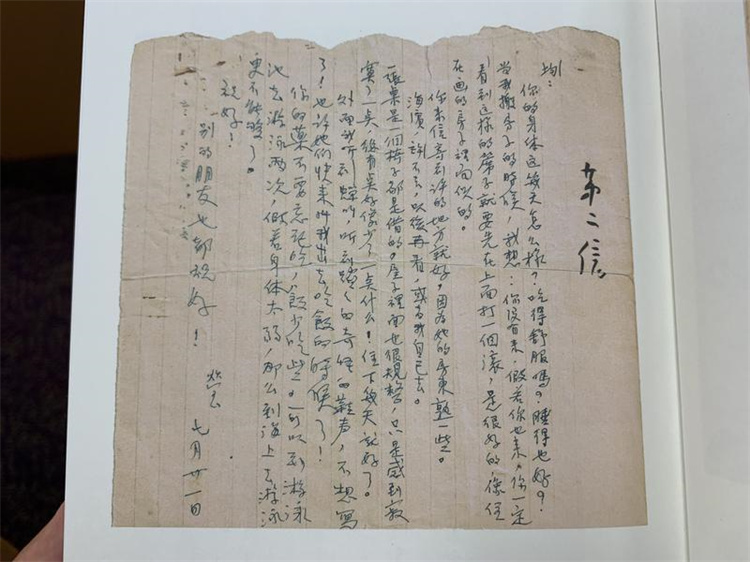 第二信
均:
你的身体这几天怎么樣?吃得舒服嗎?睡得也好?
当我搬房子的時候,我想:你没有来,假若你也来,你一定
看到这樣的蓆子就要先在上面打一個滚,是很好的,像住
在画的房子裡面似的。
你来信寄到许的地方就好,因为她的房東熟一些。
海濱,許不去,以後再看,或者我自己去。
一張桌是一個椅子都是借的,屋子裡面也很規整,只是感到寂
寞了一点,總有点好像少了一点什么!住下幾天就好了。
外面我听到蟬叫,听到踏々的奇怪的鞋声,不想寫
了!也許她们快来叫我出去吃飯的時候了!
你的藥不要忘記吃,飯少吃些,可以到游泳
池去游泳两次,假若身体太弱,那么到海上去游泳
更不能够了。
祝好!
别的朋友也都祝好!
莹 七月廿一日